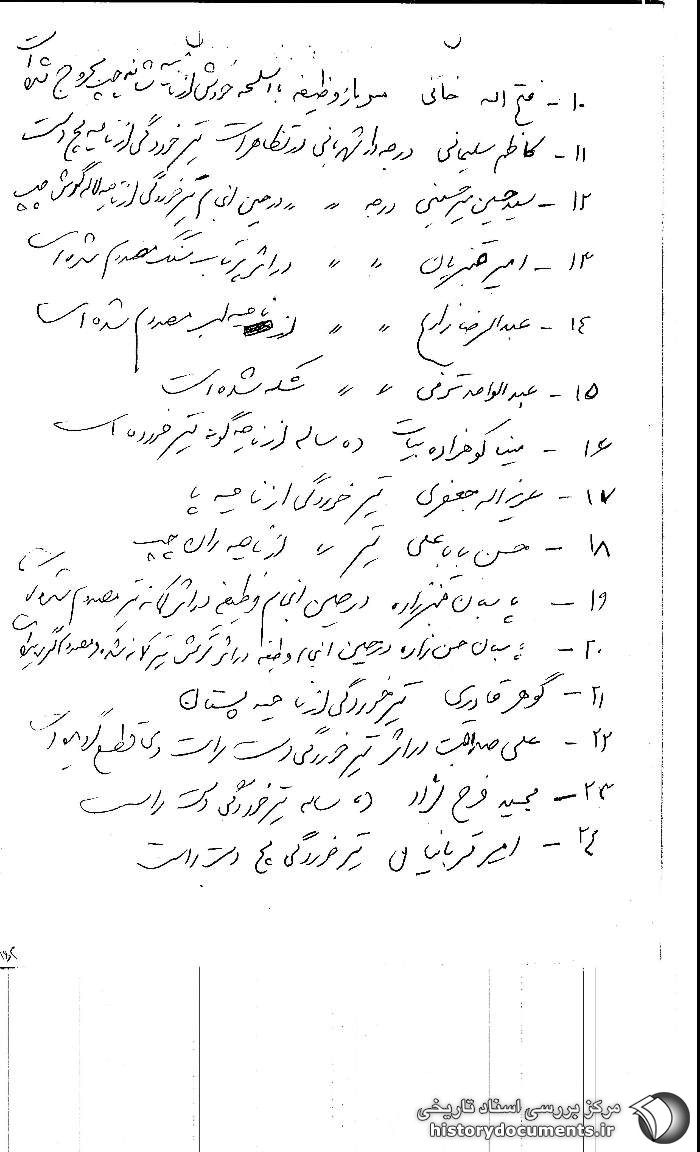 ۱۰- فتح اله خانی سرباز وظیفه با اسلحه خودش از ناحیه شانه چپ مجروح شده است
۱۱- کاظم سلیمانی درجه دار شهربانی در تظاهرات تیر خوردگی از ناحیه مچ دست
۱۲- سید حسین میرحسینی درجه 〃 〃 در حین انجام تیر خوردگی از ناحیه لاله گوش چپ
۱۳- امیر قنبریان 〃 〃 در اثر پرتاب سنگ مصدوم شده است
۱۴- عبدالرضا زارع 〃 〃 از ناحیه لب مصدوم شده است
۱۵- عبدالواحد شرفی 〃 〃 شکسته شده است
۱۶- مینا کوهزاده بیات ده ساله از ناحیه گونه تیر خورده است
۱۷- عزیز اله جعفری تیر خوردگی از ناحیه پا
۱۸- حسن باباعلی تیر 〃 از ناحیه ران چپ
۱۹- پاسبان قنبرزاده در حین انجام وظیفه در اثر کمانه تیر مصدوم شده است
۲۰- پاسبان حسن زاده در حین انجام وظیفه در اثر ترکش تیر کمانه شده و مصدوم گردیده است
۲۱- گوهر قادری تیر خوردگی از ناحیه پستان
۲۲- علی صداقت در اثر تیر خوردگی دست راست وی قطع گردیده است
۲۳- مجید فرخ نژاد ده ساله تیر خوردگی دست راست
۲۴- امیر قربانیان تیر خوردگی مچ دست راست
مرکز بررسی اسناد تاریخی
historydocuments.ir